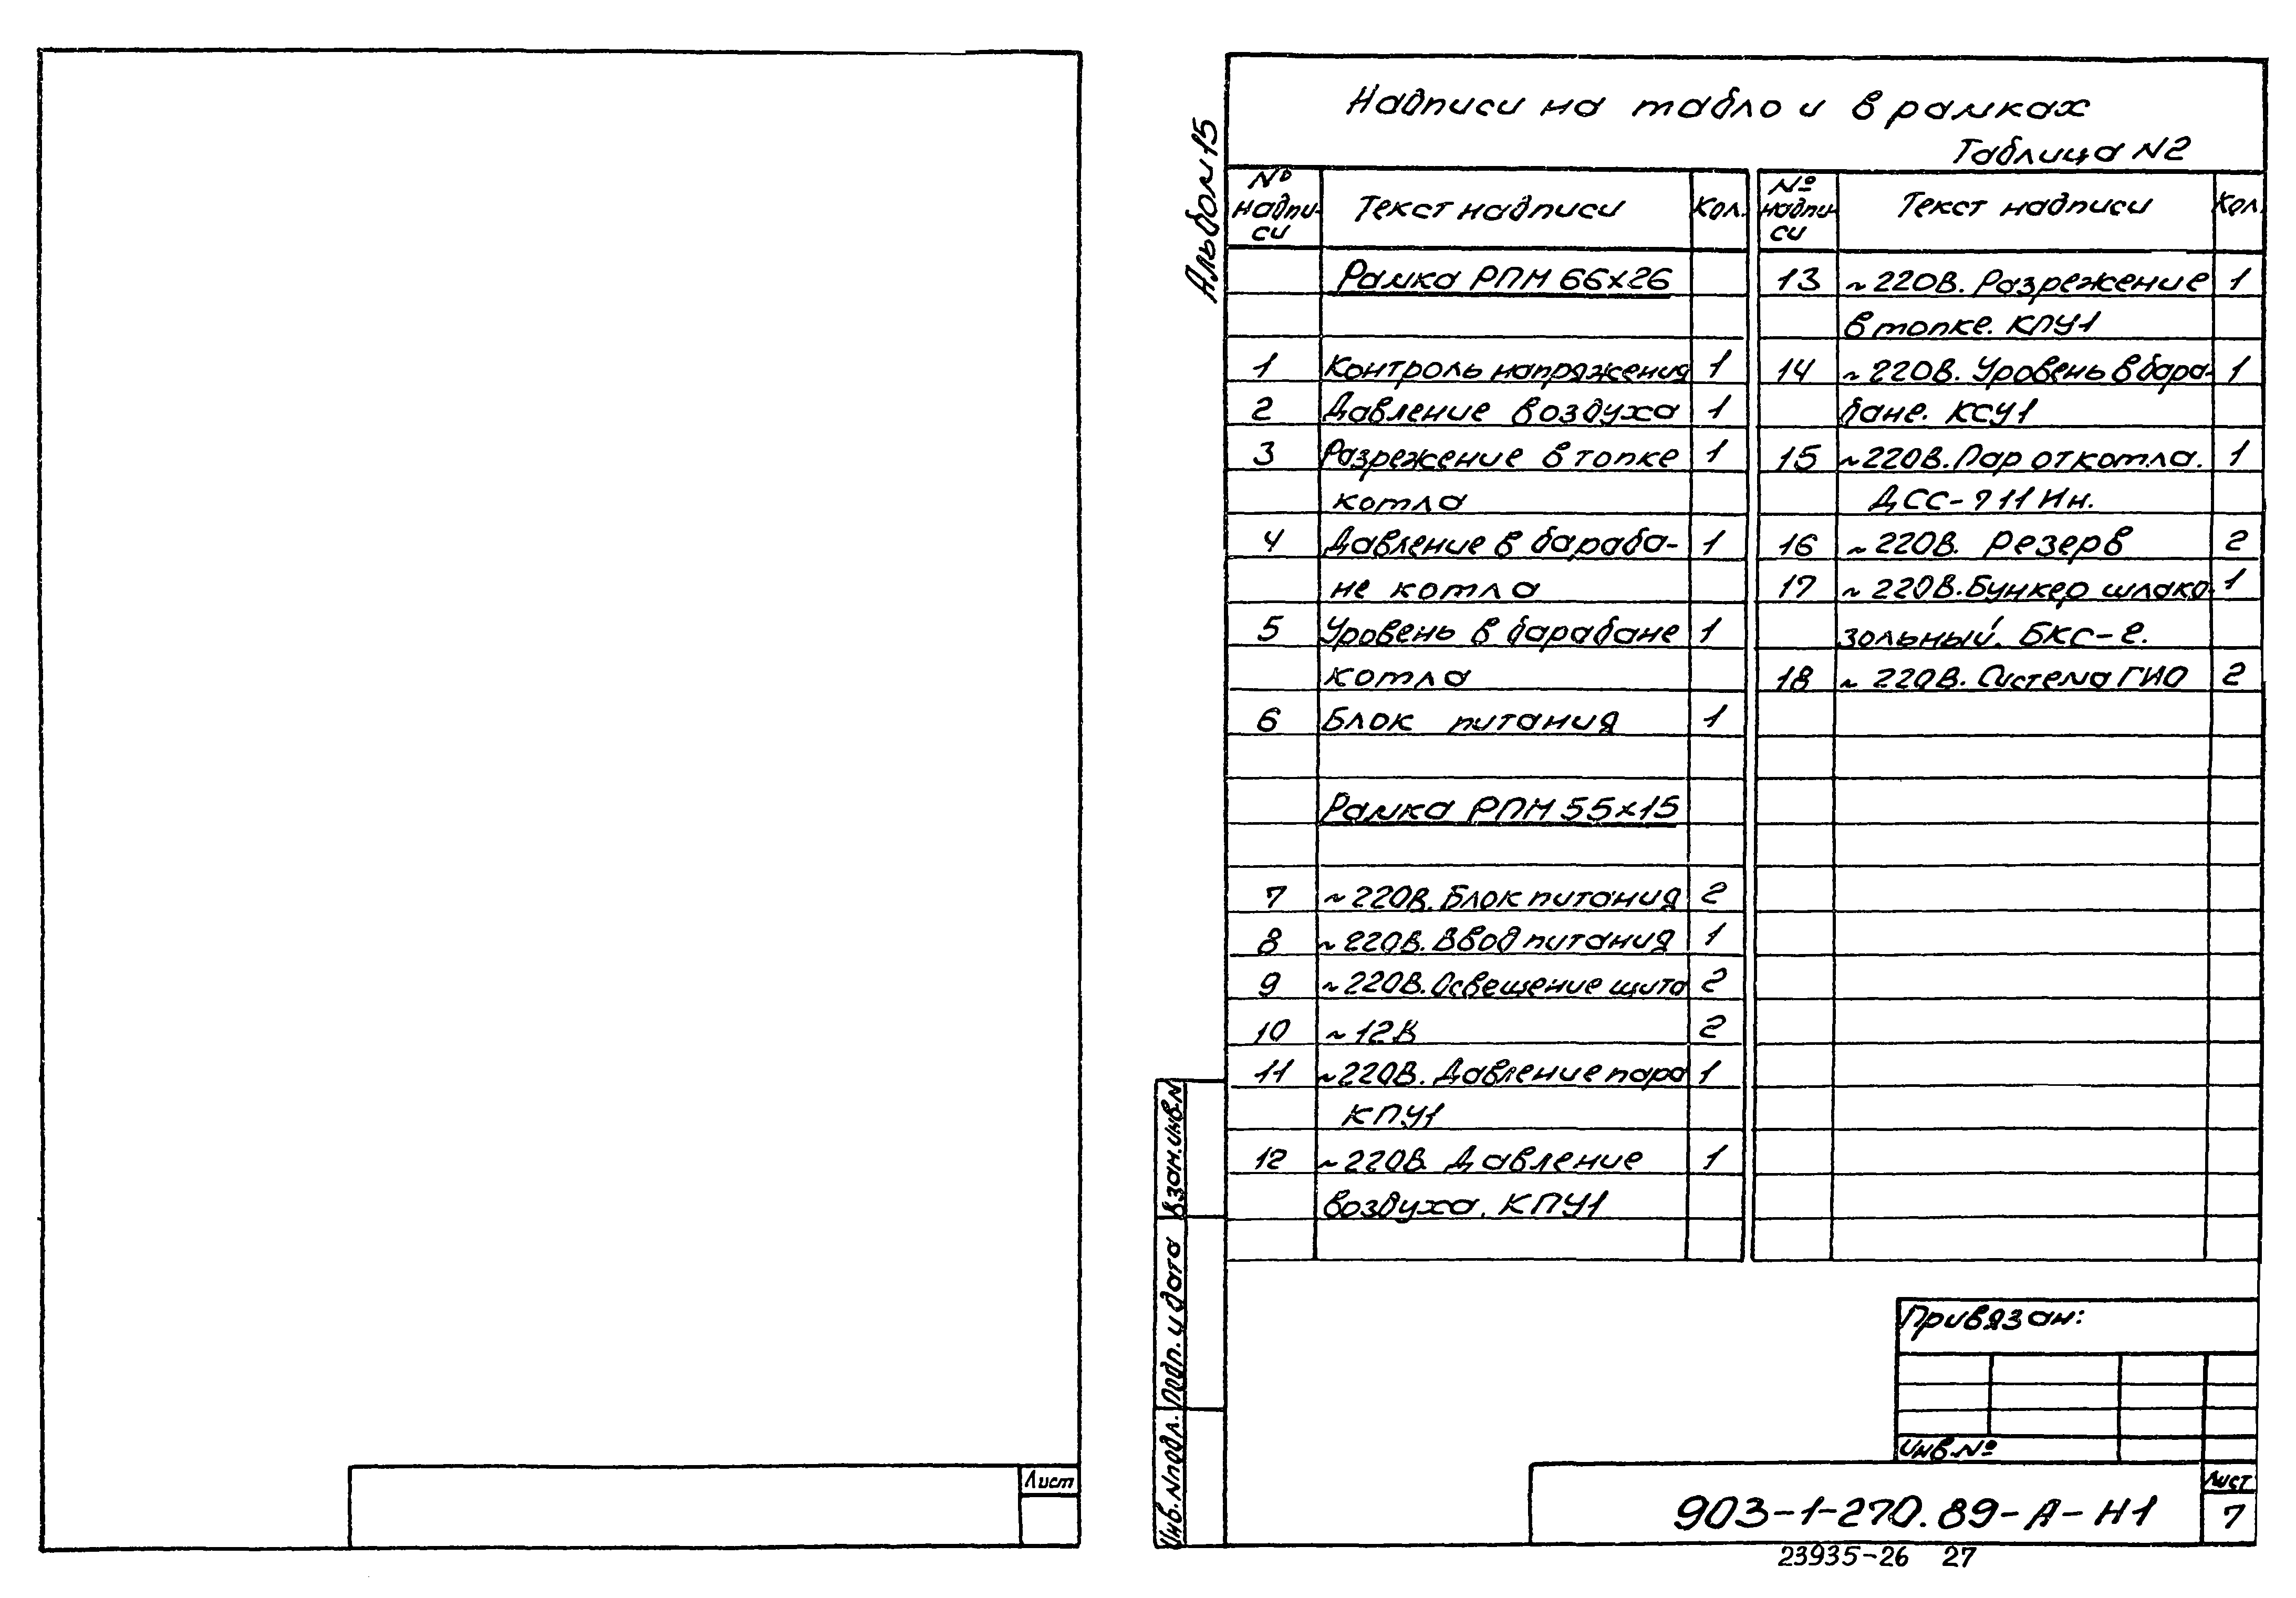 Лист
Альбом 15
Надписи на табло и в рамках
Таблица N2
№ надпи-си Текст надписи Кол.
Рамка РПМ 66х26
1 Контроль напряжения 1
2 Давление воздуха 1
3 Разрежение в топке 1
котла
4 Давление в бараба- 1
не котла
5 Уровень в барабане 1
котла
6 Блок питания 1
Рамка РПМ 55х15
7 ~220В. Блок питания 2
8 ~220В. Ввод питания 1
9 ~220В. Освещение щита 2
10 ~12В 2
11 ~220В. Давление пара 1
КПУ1
12 ~220В. Давление 1
воздуха. КПУ1
№ надпи-си Текст надписи Кол.
13 ~220В. Разрежение 1
в топке. КПУ1
14 ~220В. Уровень в бара- 1
бане. КСУ1
15 ~220В. Пар от котла. 1
ДСС-711Ин.
16 ~220В. Резерв 2
17 ~220В. Бункер шлако- 1
зольный. БКС-2.
18 ~220В. Система ГИО 2
Взам. инв. N
Подп. и дата
Инв. N подл.
Привязан:
Инв. №
903-1-270.89-А-Н1
Лист
7
23935-26 27